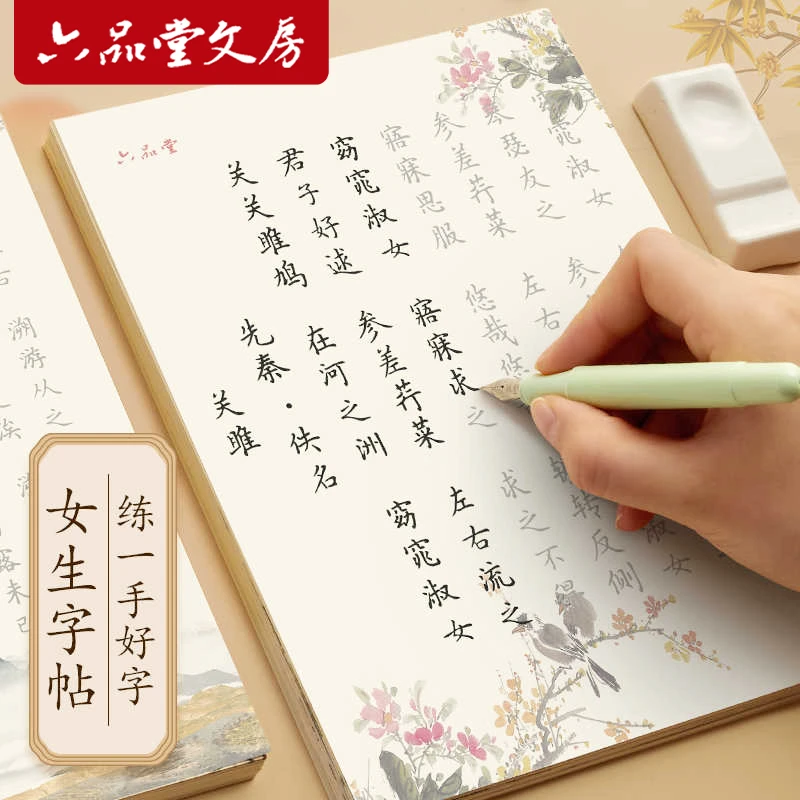 六品堂文房
六品堂
关雎
先秦·佚名
关关雎鸠
在河之洲
窈窕淑女
君子好逑
参差荇菜
左右流之
窈窕淑女
寤寐求之
求之不得
寤寐思服
悠哉悠
转反侧
参差荇菜
左右
琴瑟友之
参
窈窕淑女
溯游从之
未已
练一手好字
女生字帖